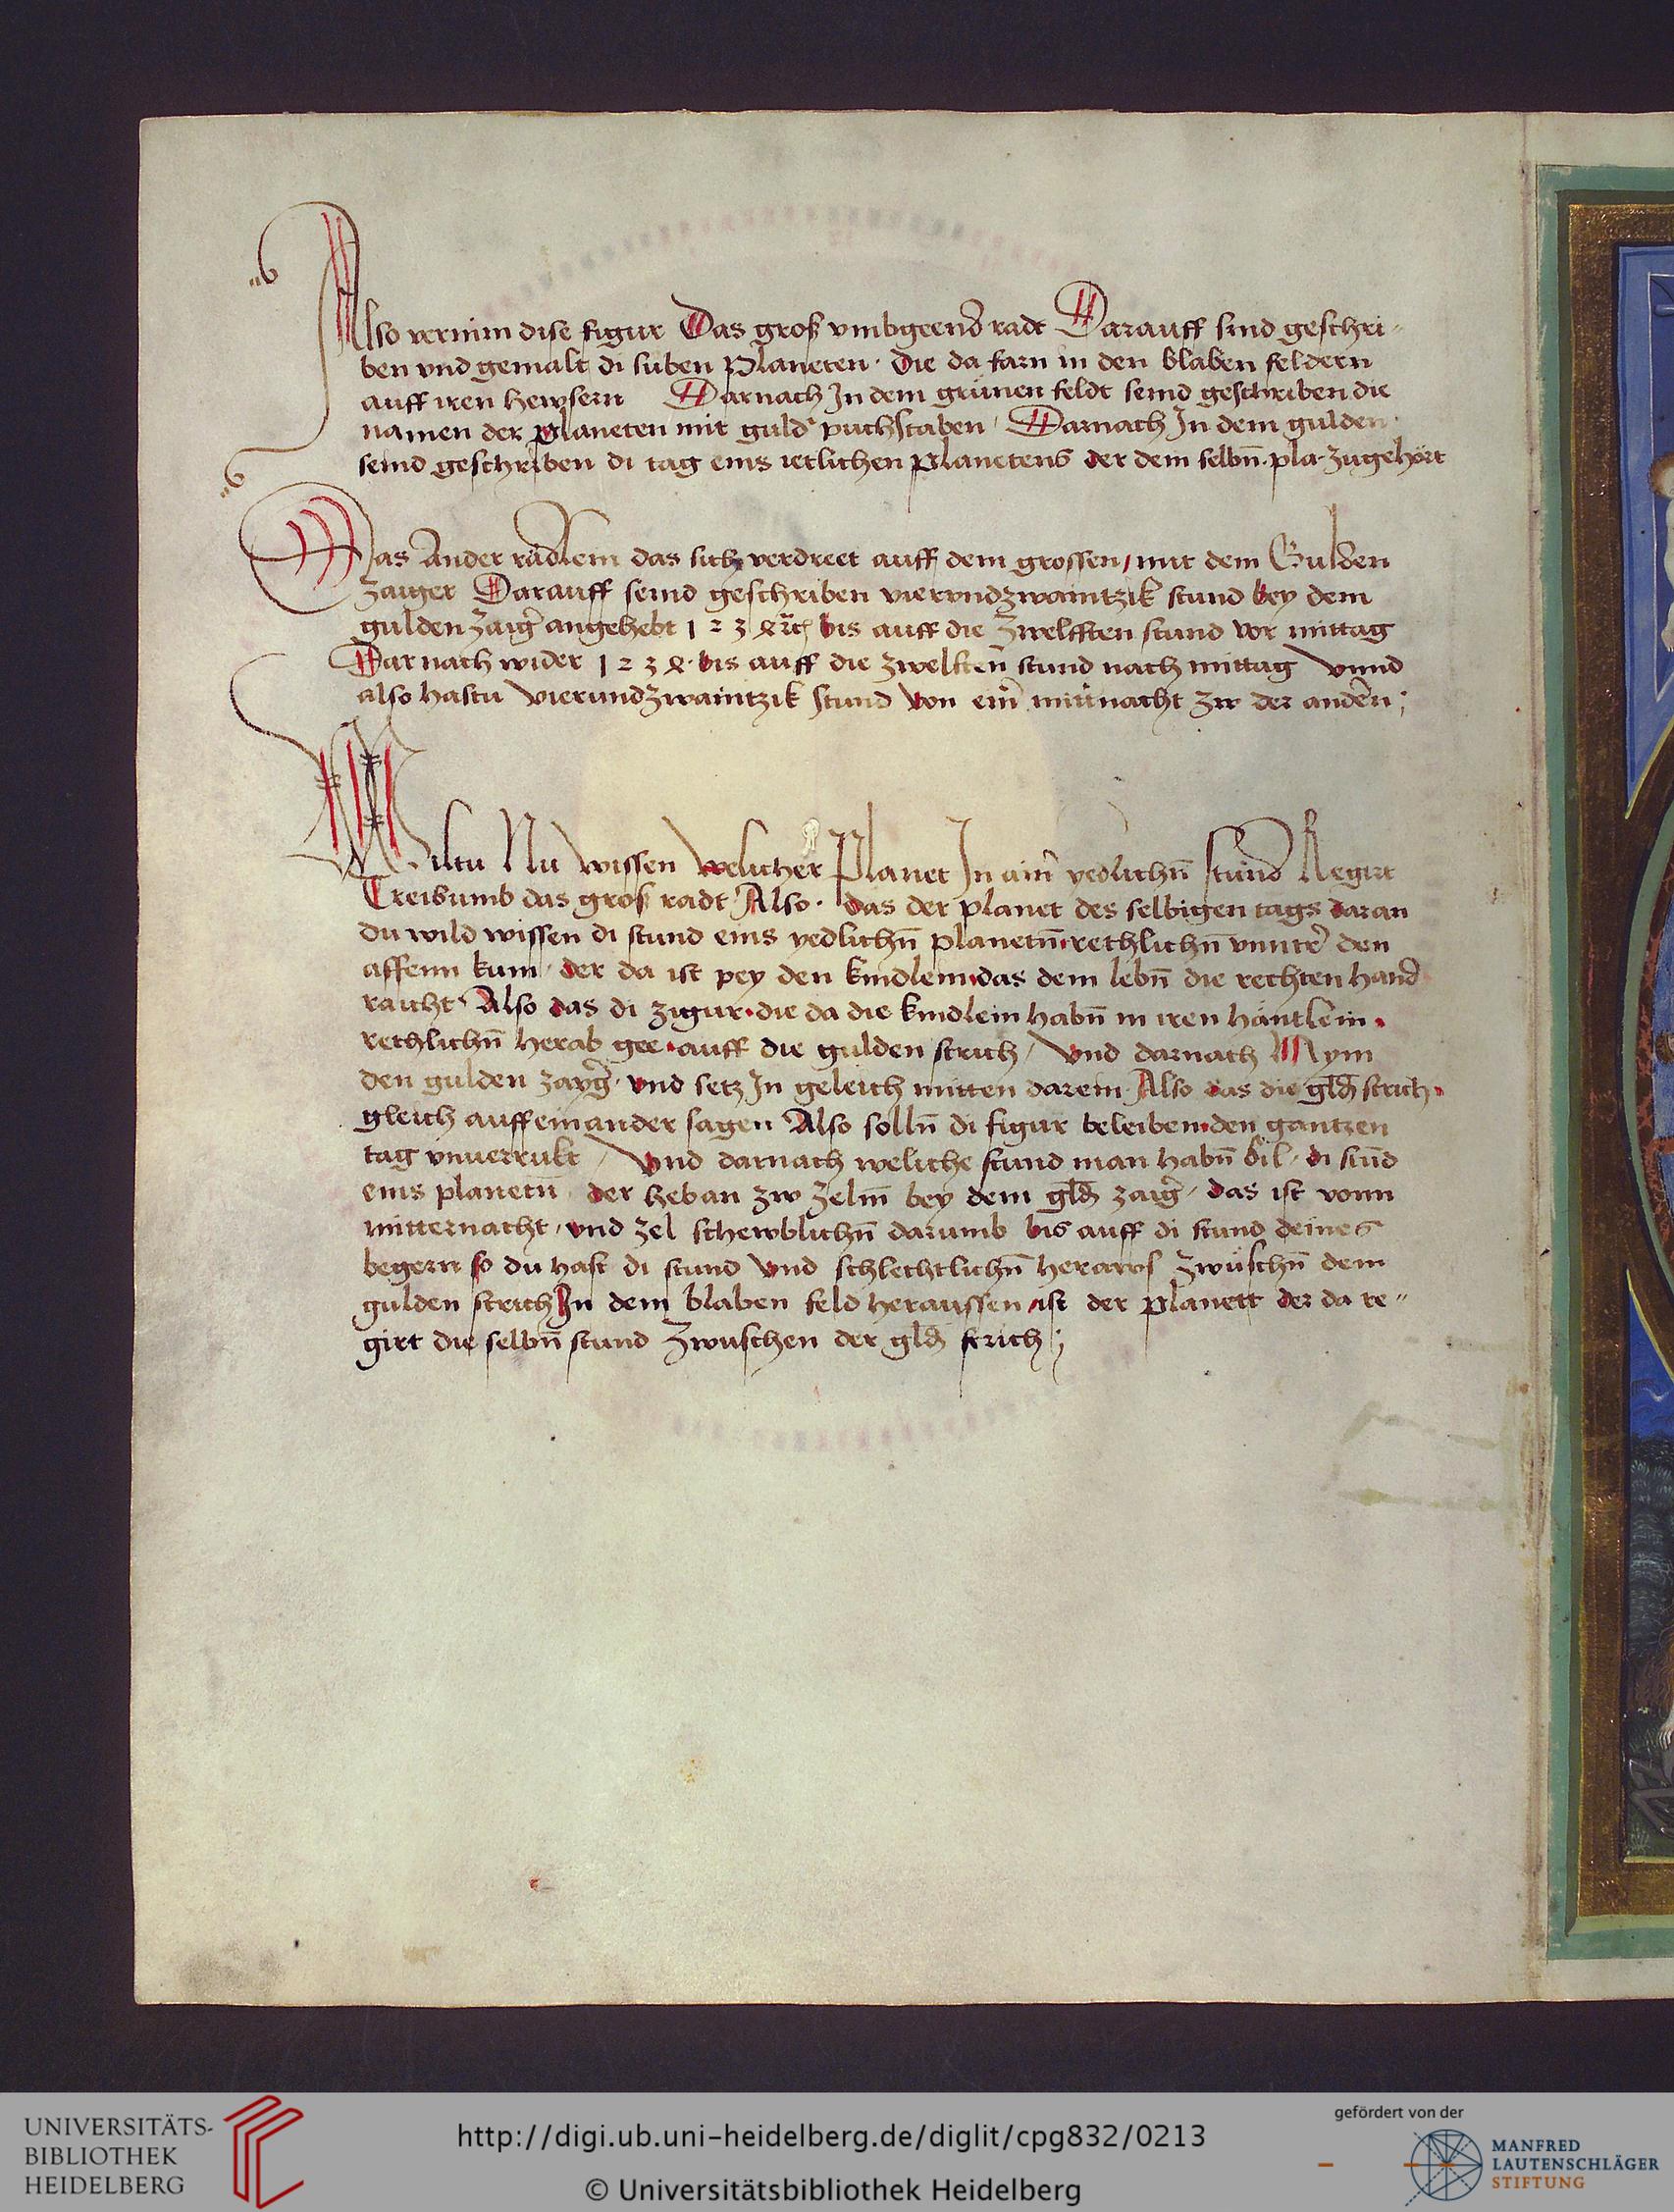 Also vernim dise figur Das groß vmbgeend radt Darauff sind geschri-
ben vnd gemalt di siben Planeten · die da farn in den blaben feldern
auff iren hewsern Darnach In dem grünen feldt seind geschriben die
namen der planeten mit guld puchstaben / Darnach In dem gulden
seind geschriben di tag eins ietlichen planetens der dem selbn̄ pla· zugehört
Das Ander rädlein das sich verdreet auff dem grossen / mit dem Gulden
zaiger Darauff seind geschriben vierundzwaintzik stund bey dem
gulden zaig̉ angehebt 1 2 3 4 bis auff die zwelfften stund vor mittag
Dar nach wider 1 2 3 4 · bis auff die zwelften stund nach mittag Vnnd
also hastu vierundzwaintzik stund von ein̉ mitnacht zw der andern ;
Wiltu Nu wissen welicher Planet In ain̉ yedlichn̄ stund Regirt
Treib umb das groß radt Also · das der planet des selbigen tags daran
du wild wissen di stund eins yedlichn̄ planetn̄ rechlichn̄ vnnter̉ den
affenn kum / der da ist pey den kindlein das dem lebn̄ die rechten hand
raicht Also das di zigur · die da die kindlein habn̄ in iren häntlein ·
rechlichn̄ herab gee · auff die gulden strich / Vnd darnach Nym
den gulden zayg̉ · vnd setz In geleich mitten darein · Also das die gld̄ strich ·
gleich auff einander sagen Also solln̄ di figur beleiben den gantzen
tag vnuerrukt / Vnd darnach weliche stund man habn̄ wil · di stūd
eins planetn̄ · der heb an zw zeln̄ bey dem gld̄ zaig̉ / das ist vonn
mitternacht / vnd zel schewblichn̄ darumb bis auff di stund deines
begern so du hast di stund vnd schlechtlichn̄ heraws zwüschn̄ dem
gulden strich In dem blaben feld heraussen / ist der planett der da re-
girt die selbn̄ stund zwuschen der gld̄ strich ;
UNIVERSITÄTS-
BIBLIOTHEK
HEIDELBERG
http://digi.ub.uni-heidelberg.de/diglit/cpg832/0213
© Universitätsbibliothek Heidelberg
gefördert von der
MANFRED
LAUTENSCHLÄGER
STIFTUNG